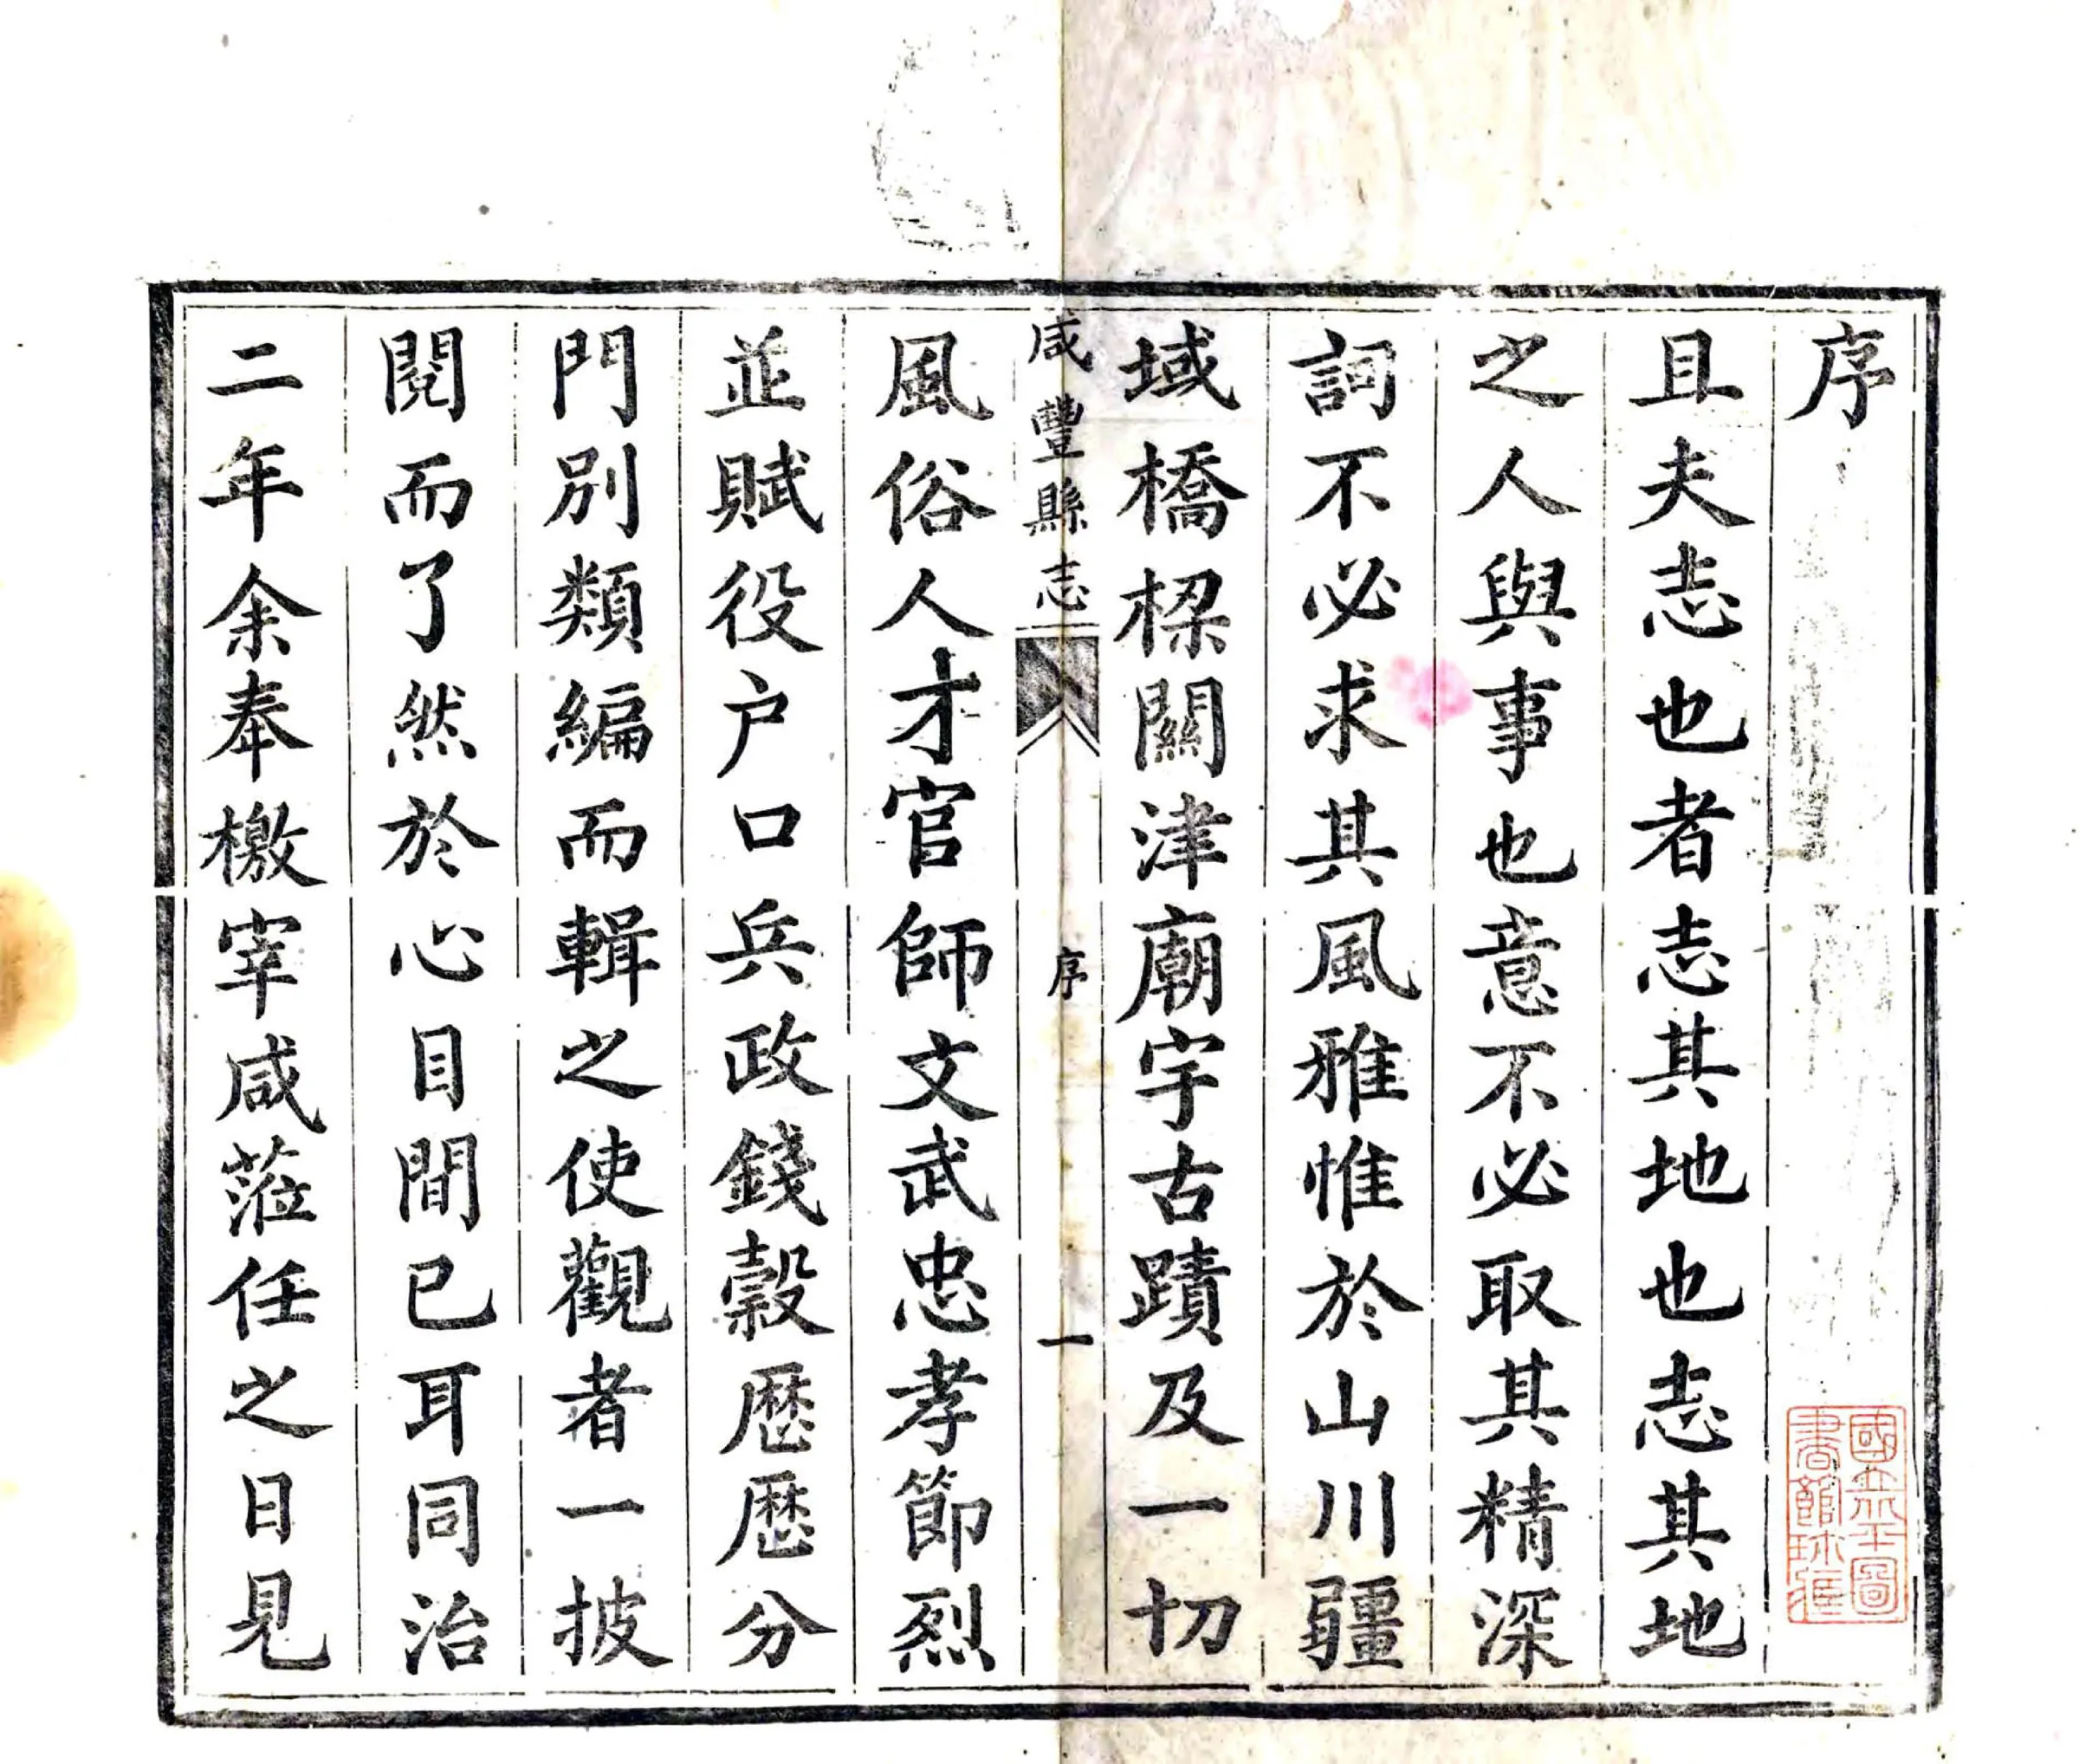 序
且夫志也者志其地也志其地
之人與事也意不必取其精深
詞不必求其風雅惟於山川疆
域橋樑關津廟宇古蹟及一切
咸豐縣志
序
一
風俗人才官師文武忠孝節烈
並賦役户口兵政錢榖歷歷分
門別類編而輯之使觀者一披
閱而了然於心目間已耳同治
二年余奉檄宰咸蒞任之日見
國立北平圖
書館珍藏